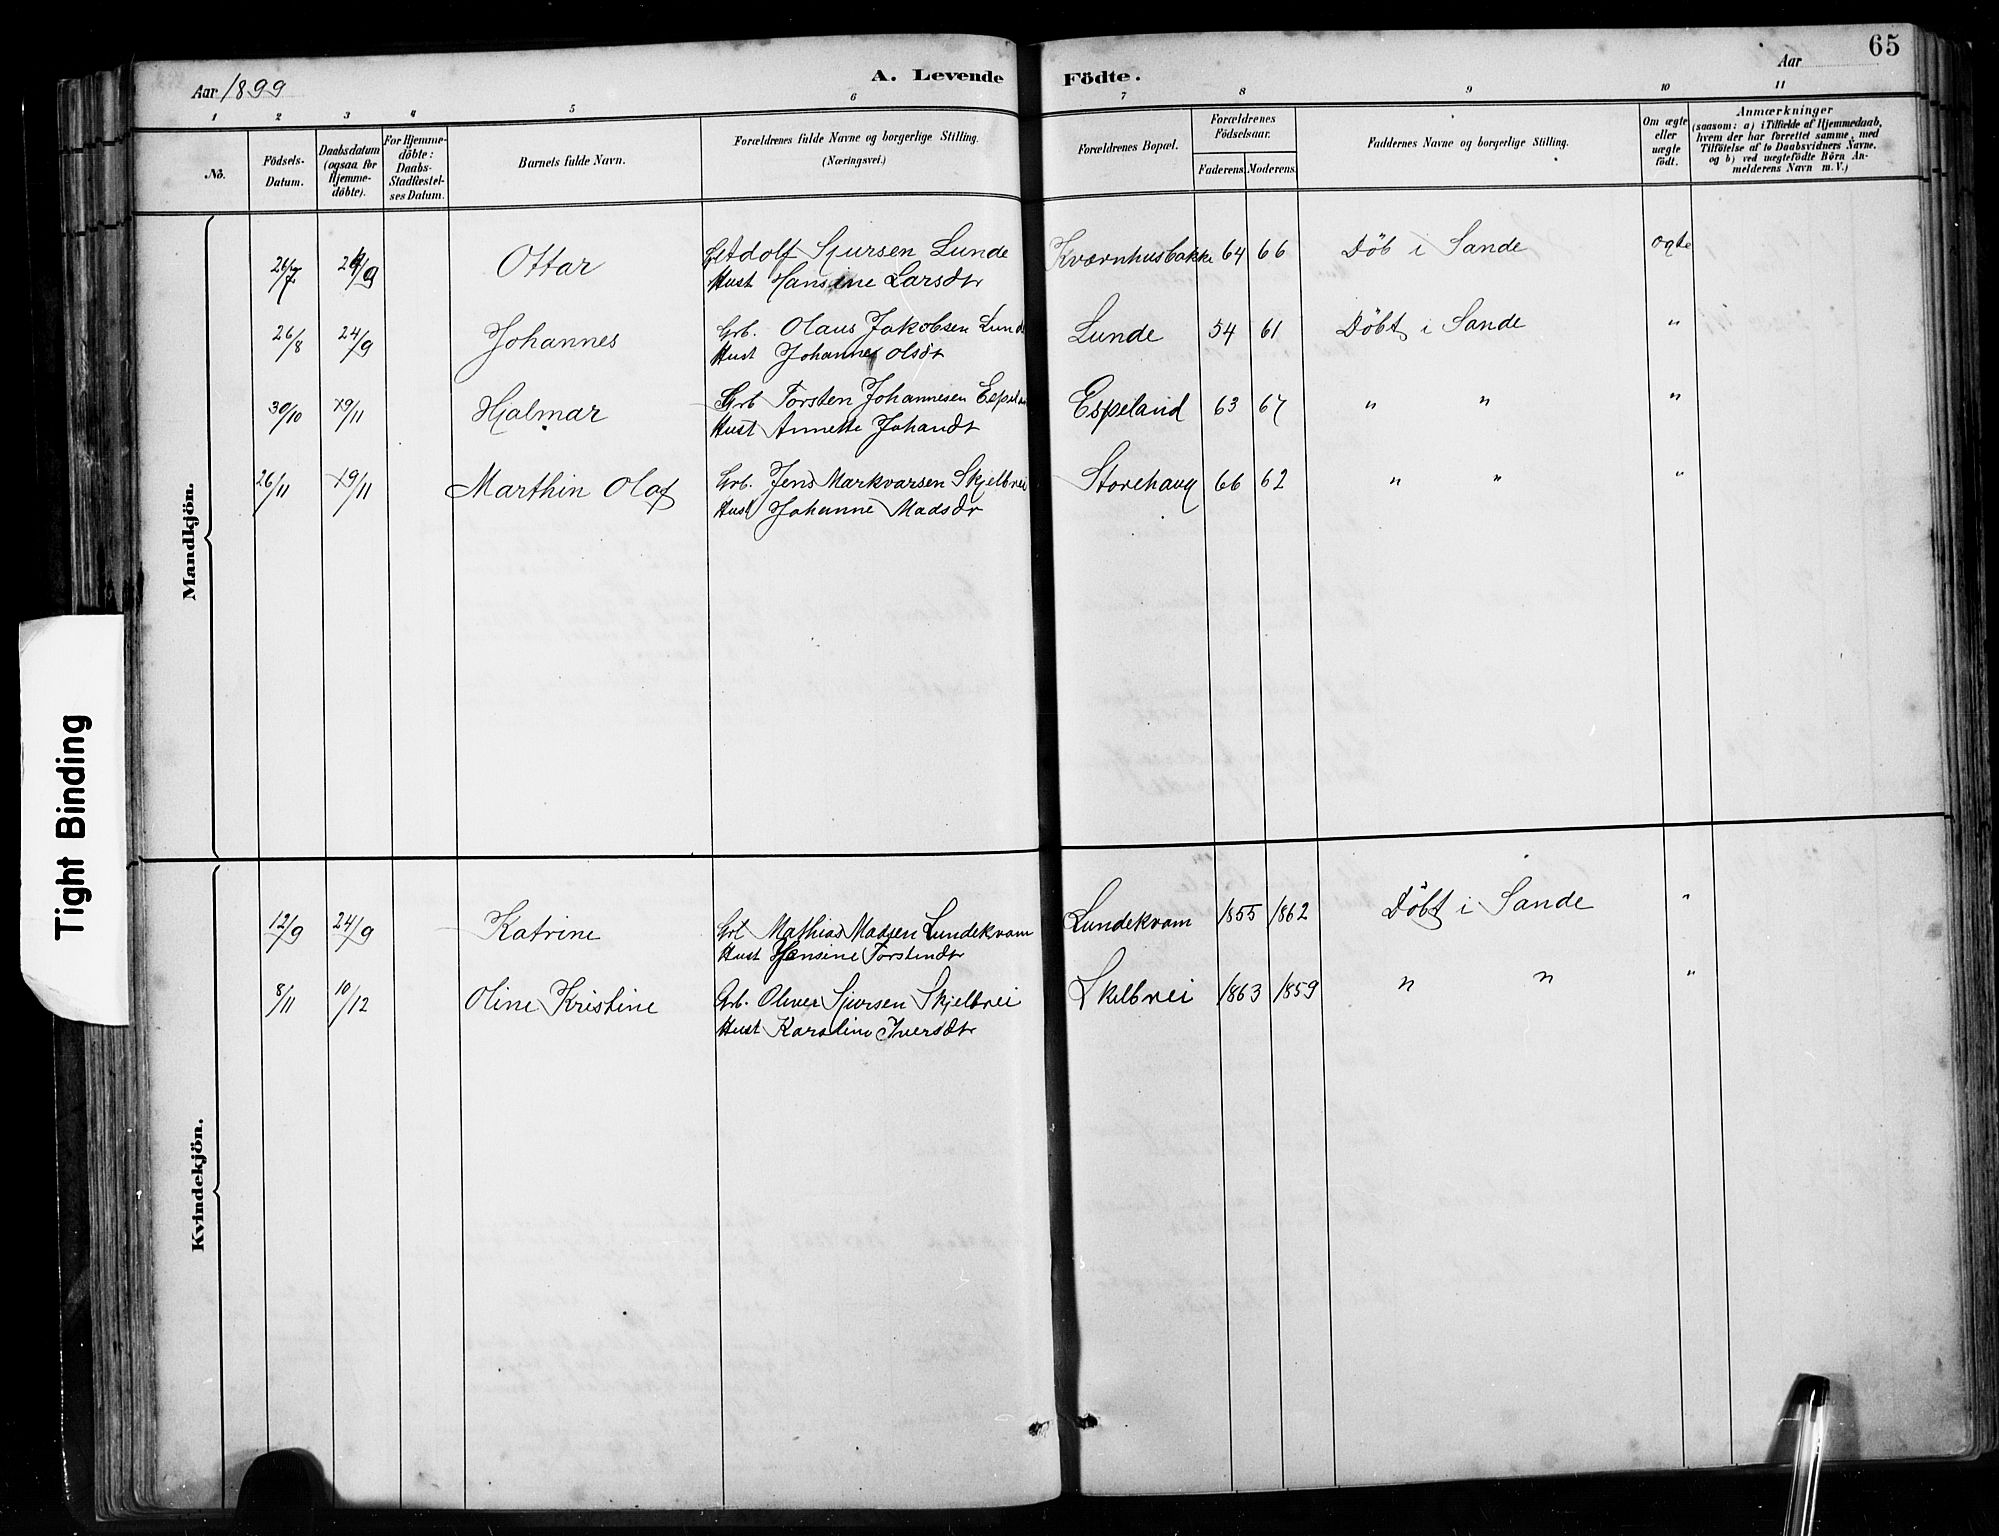 65
Aar 1899
A. Levende Födte.
Aar
1 2 3 4 5 6 7 8 9 10 11
No.
Födsels-Datum.
Daabsdatum (ogsaa for Hjemme-döbte).
For Hjemme-döbte: Daabs-Stadfæstel-ses Datum.
Barnets fulde Navn.
Forældrenes fulde Navne og borgerlige Stilling.
(Næringsvei.)
Forældrenes Bopæl.
Forældrenes Födselsaar.
Faderens. Moderens.
Faddernes Navne og borgerlige Stilling.
Om ægte eller uægte födt.
Anmærkninger
(saasom: a) i Tilfælde af Hjemmedaab, hvem der har forrettet samme, med Tilföielse af to Daabsvidners Navne, og b) ved uægtefödte Börn An-melderens Navn m. V.)
Mandkjön.
26/7 24/9 Ottar Adolf Sjursen Lunde Kværnhusbakke 64 66 Döb i Sande ogte
Hust Hansine Larsdtr
26/8 24/9 Johannes Grb. Olaus Jakobsen Lunde Lunde 54 61 Döbt i Sande "
Hust Johanne Olsdt
30/10 19/11 Hjalmar Grb Torsten Johannesen Espeland 63 67 " " "
Hust Annette Johandt
26/11 19/11 Marthin Olaf Grb. Jens Markvarsen Skjelbrei Storehaug 66 62 " " "
Hust Johanne Madsdr
Kvindekjön.
12/9 24/9 Katrine Grb Mathias Madsen Lundekvam Lundekvam 1855 1862 Döbt i Sande "
Hust Hansine Torstendtr
8/11 10/12 Oline Kristine Grb. Oliver Sjursen Skjelbrei Skelbrei 1863 1859 " " "
Hust Karoline Iversdtr
Tight Binding